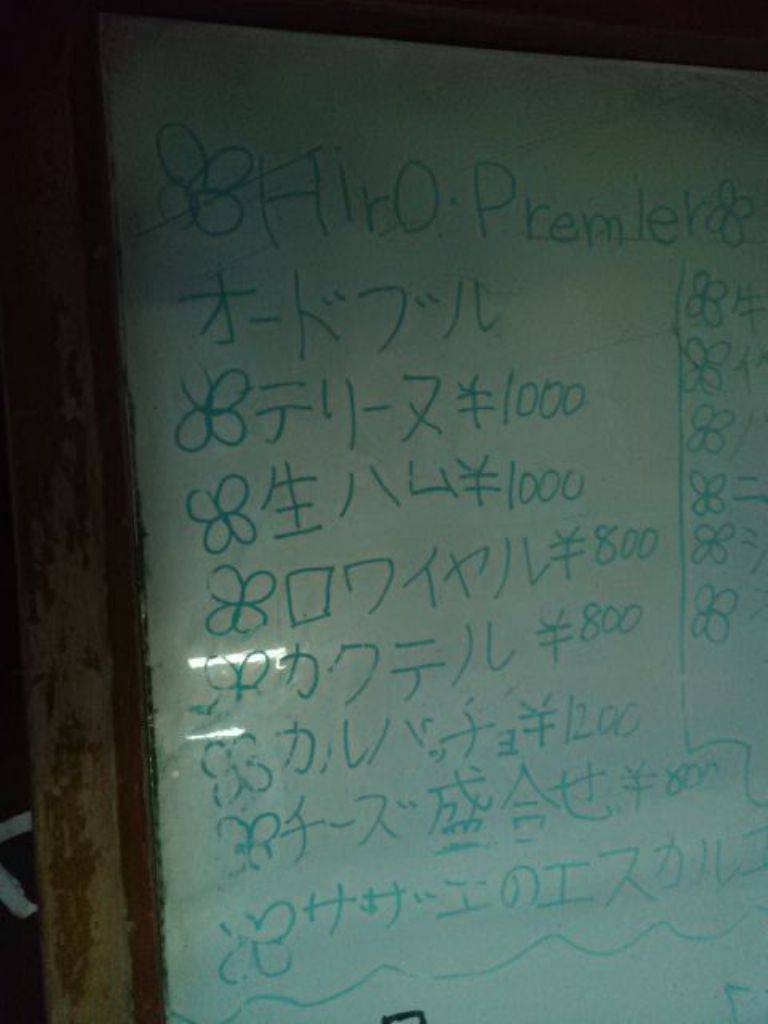 HirO・Premier
オードブル
テリーヌ ¥1000
生ハム ¥1000
ロワイヤル ¥800
カクテル ¥800
カルパッチョ ¥1200
チーズ盛合せ ¥800
サザエのエスカルゴ